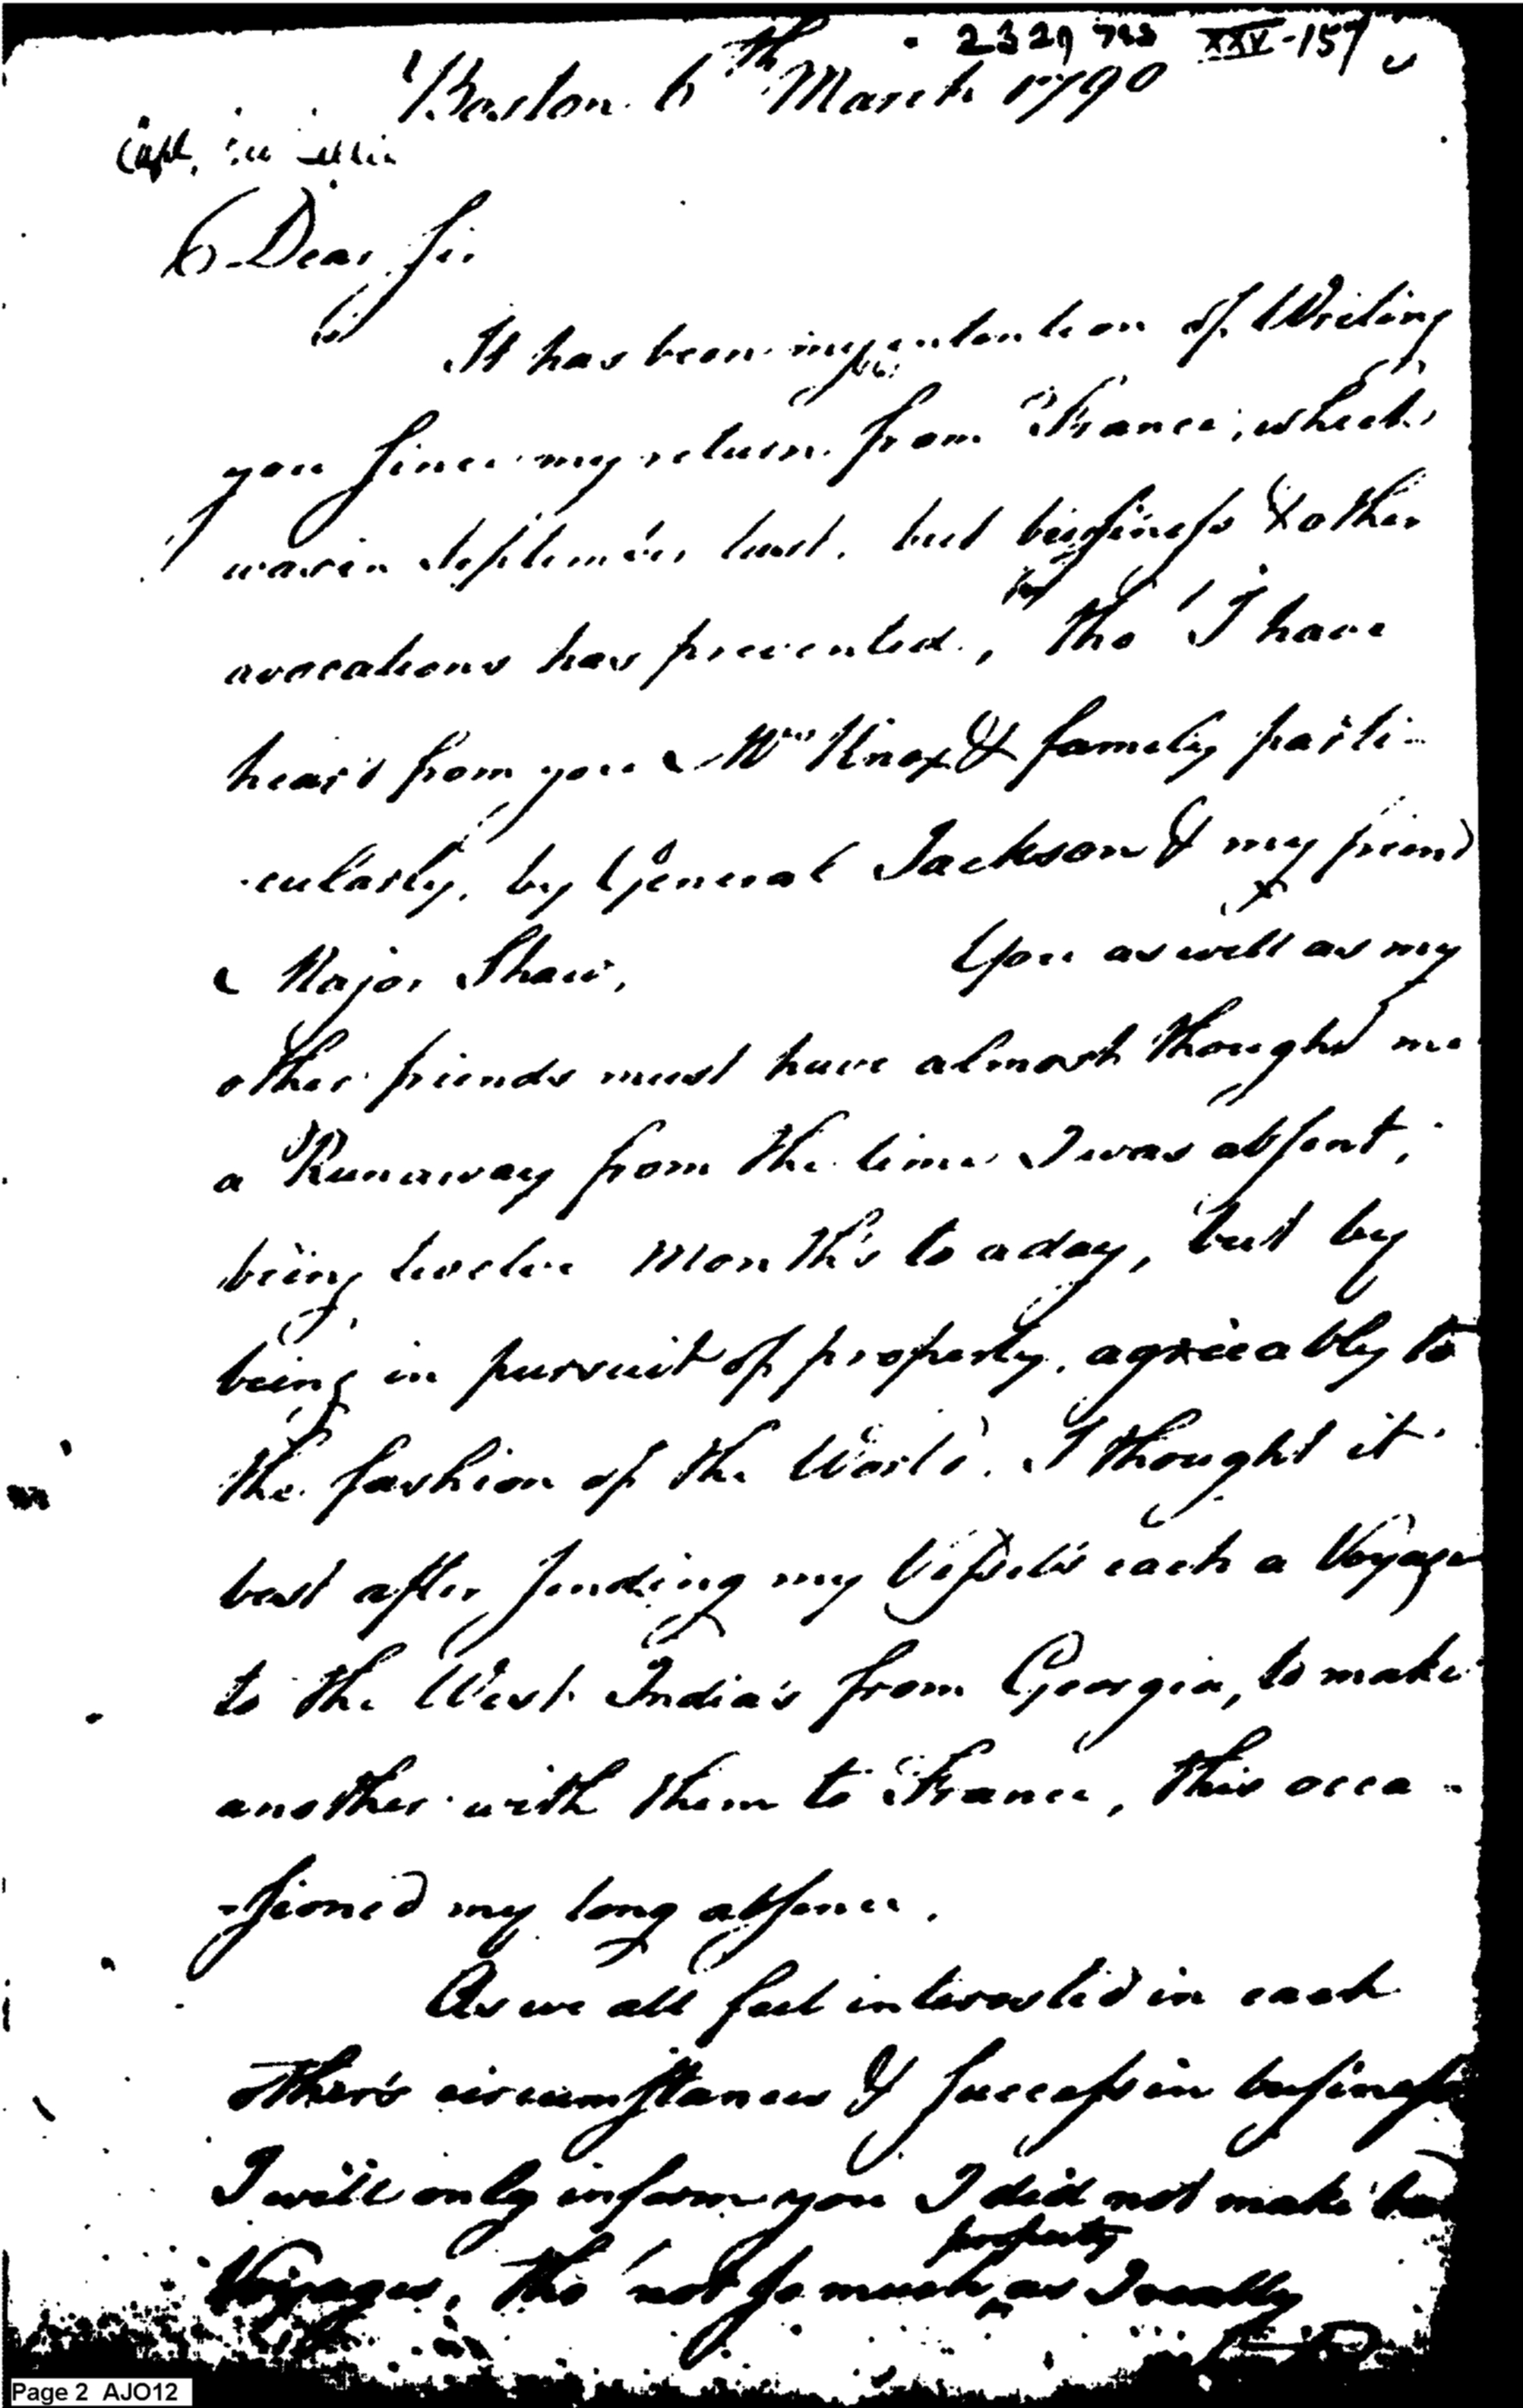 XXV-157
Boston 6th March 1790
Capt.
Dear Sir
It has been my intention of Writing
you since my return from France, which
was in September last. but business & other
avocations has prevented, tho' I have
heard from you Mrs Knox & family parti-
-cularly, by General Jackson & my friend
Major Shaw, You as well as my
other friends must have almost thought me
a Runaway from the time I was absent,
being twelve Months to a day, but by
being in pursuit of property, agreeably to
the fashion of the World. I thought it
best after sending my Vessels each a Voyage
to the West India's from Georgia, to make
another with them to France, this occa-
-sioned my long absence.
As we all feel interested in each
other's circumstances & success in business
I will only inform you I did not make bad
Voyages, tho' not so much property as I really
Page 2 AJO12